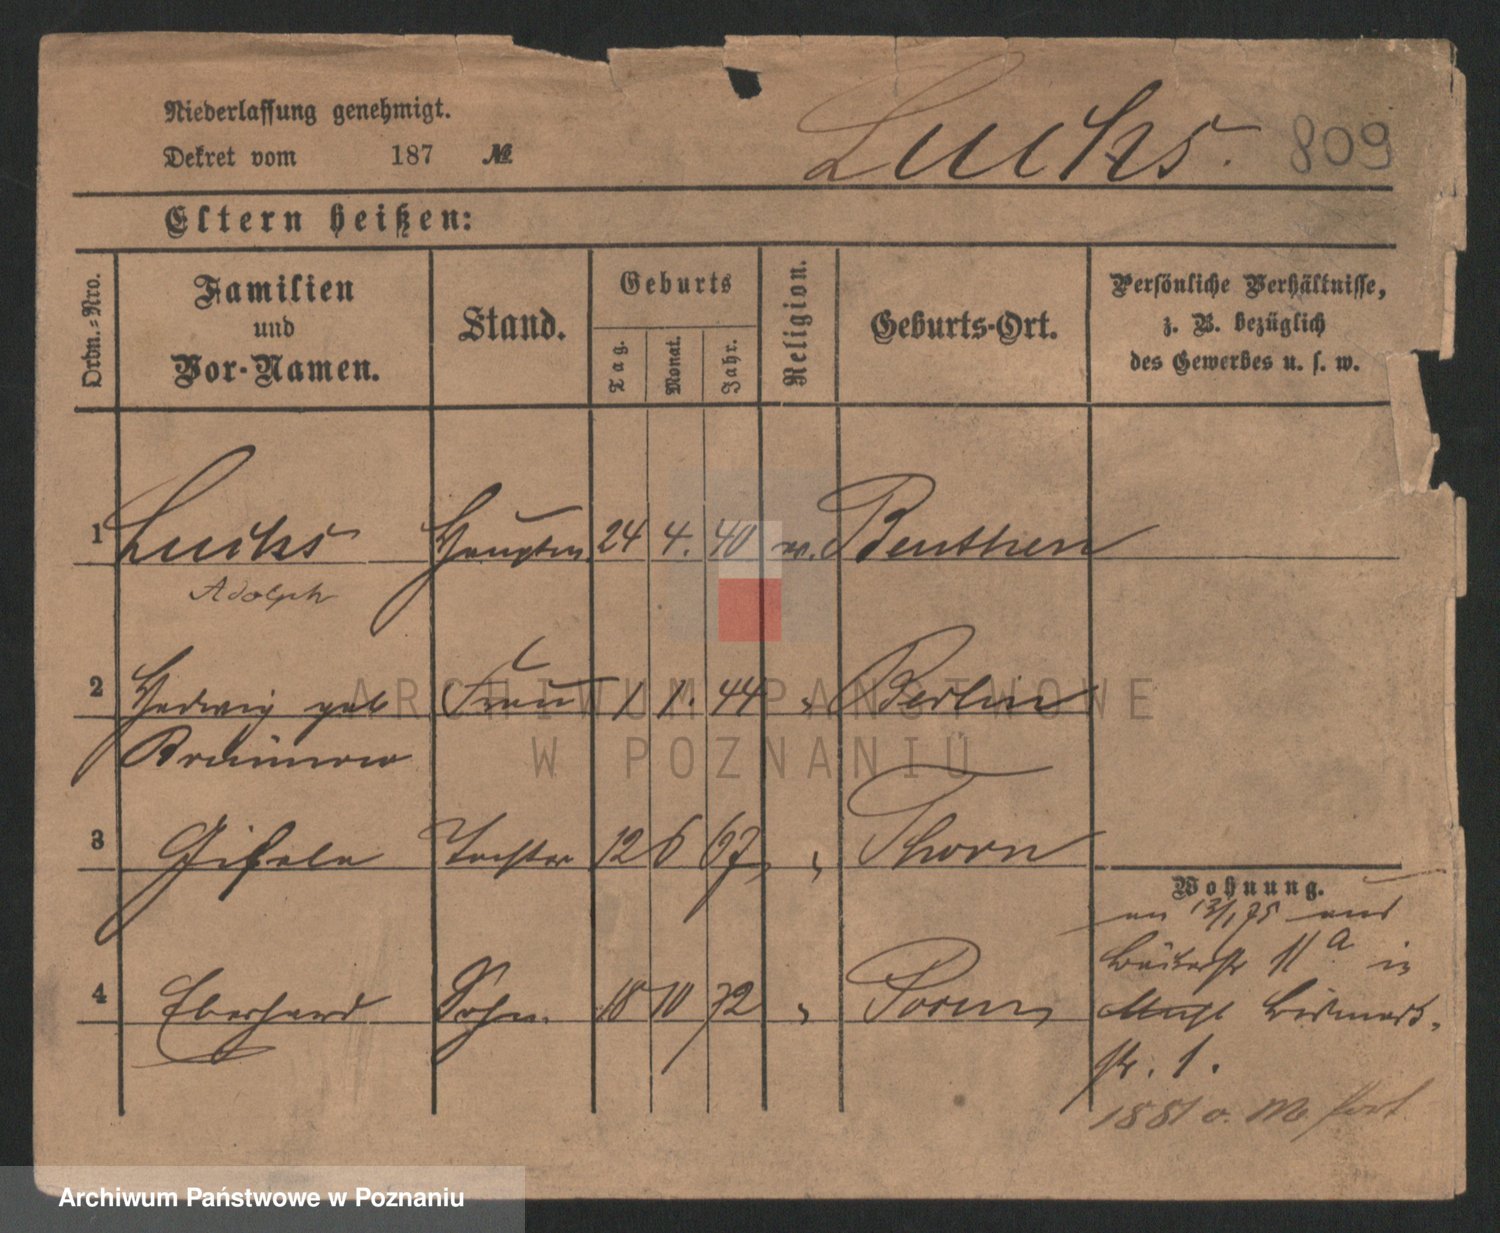 Niederlassung genehmigt.
Dekret vom 187 №
Luchs. 809
Eltern heißen:
Ordn.=Nro.
Familien
und
Vor-Namen.
Stand.
Geburts
Tag.
Monat.
Jahr.
Religion.
Geburts-Ort.
Persönliche Verhältnisse,
z. B. bezüglich
des Gewerbes u. s. w.
1 Luchs Hauptm. 24 4. 40 Beuthen
Adolph
2 Hedwig geb Frau 1 1. 44 " Berlin
3 Gisela Tochter 12 6 67 " Thorn
Wohnung.
an 13/1 75 aus
11a in
4 Eberhard Sohn. 18 10 72 " Posen
Bismark-
str. 1.
1881 o. M. fort
ARCHIWUM PAŃSTWOWE
W POZNANIU
Archiwum Państwowe w Poznaniu